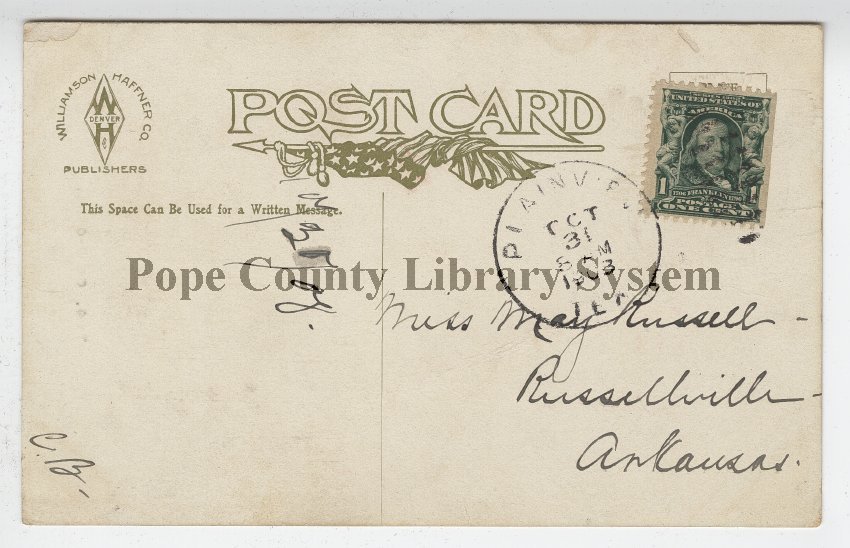 WILLIAMSON HAFFNER CO.
W
DENVER
H
PUBLISHERS
POST CARD
UNITED STATES OF
AMERICA
1 1706 FRANKLIN 1790 1
POSTAGE
ONE CENT
This Space Can Be Used for a Written Message.
08.
PLAINVIE
OCT
31
8 M
TEX
Pope County Library System
Miss May Russell -
Russellville -
Arkansas.
C.B.-